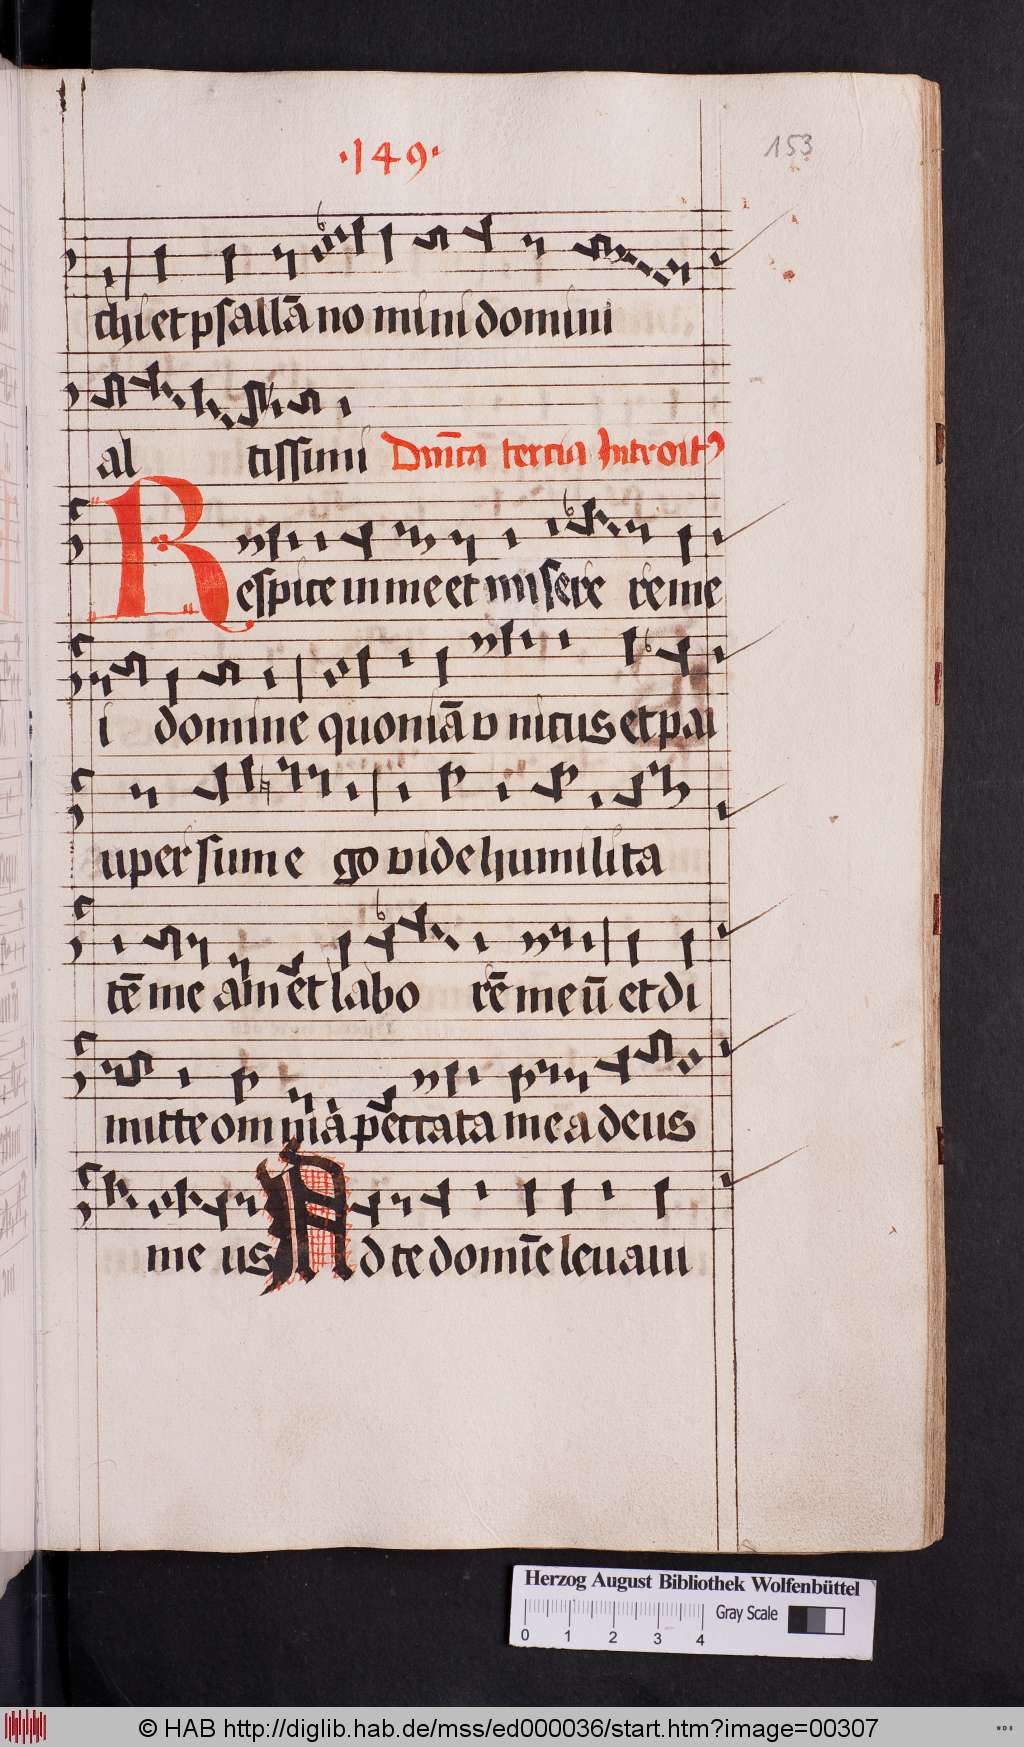 ·149·
153
chi et psallā no mini domini
al tissimi Dnīca tercia Introitꝯ
Respice in me et misere re me
i domine quoniā v nicus et pau
uper sum e go vide humilita
tē me am et labo rē me ū et di
mitte om niā peccata me a deus
me us Ad te domīe levavi
Herzog August Bibliothek Wolfenbüttel
Gray Scale
0 1 2 3 4
© HAB http://diglib.hab.de/mss/ed000036/start.htm?image=00307